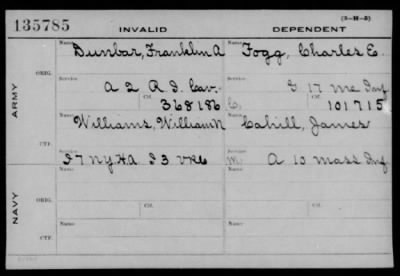 135785 INVALID DEPENDENT (3-H-3)
Name Dunbar, Franklin A Name Fogg, Charles E.
ARMY
ORIG. Service A 2 R I Cav. Service G 17 Me Inf
Ctf. 368186 C. Ctf. 101715
Name Williams, William N Name Cahill, James
CTF. Service I 7 N.Y.H.A I 3 VRC Service M A 10 Mass Inf
NAVY
ORIG. Name Ctf. Name Ctf.
CTF. Name Name